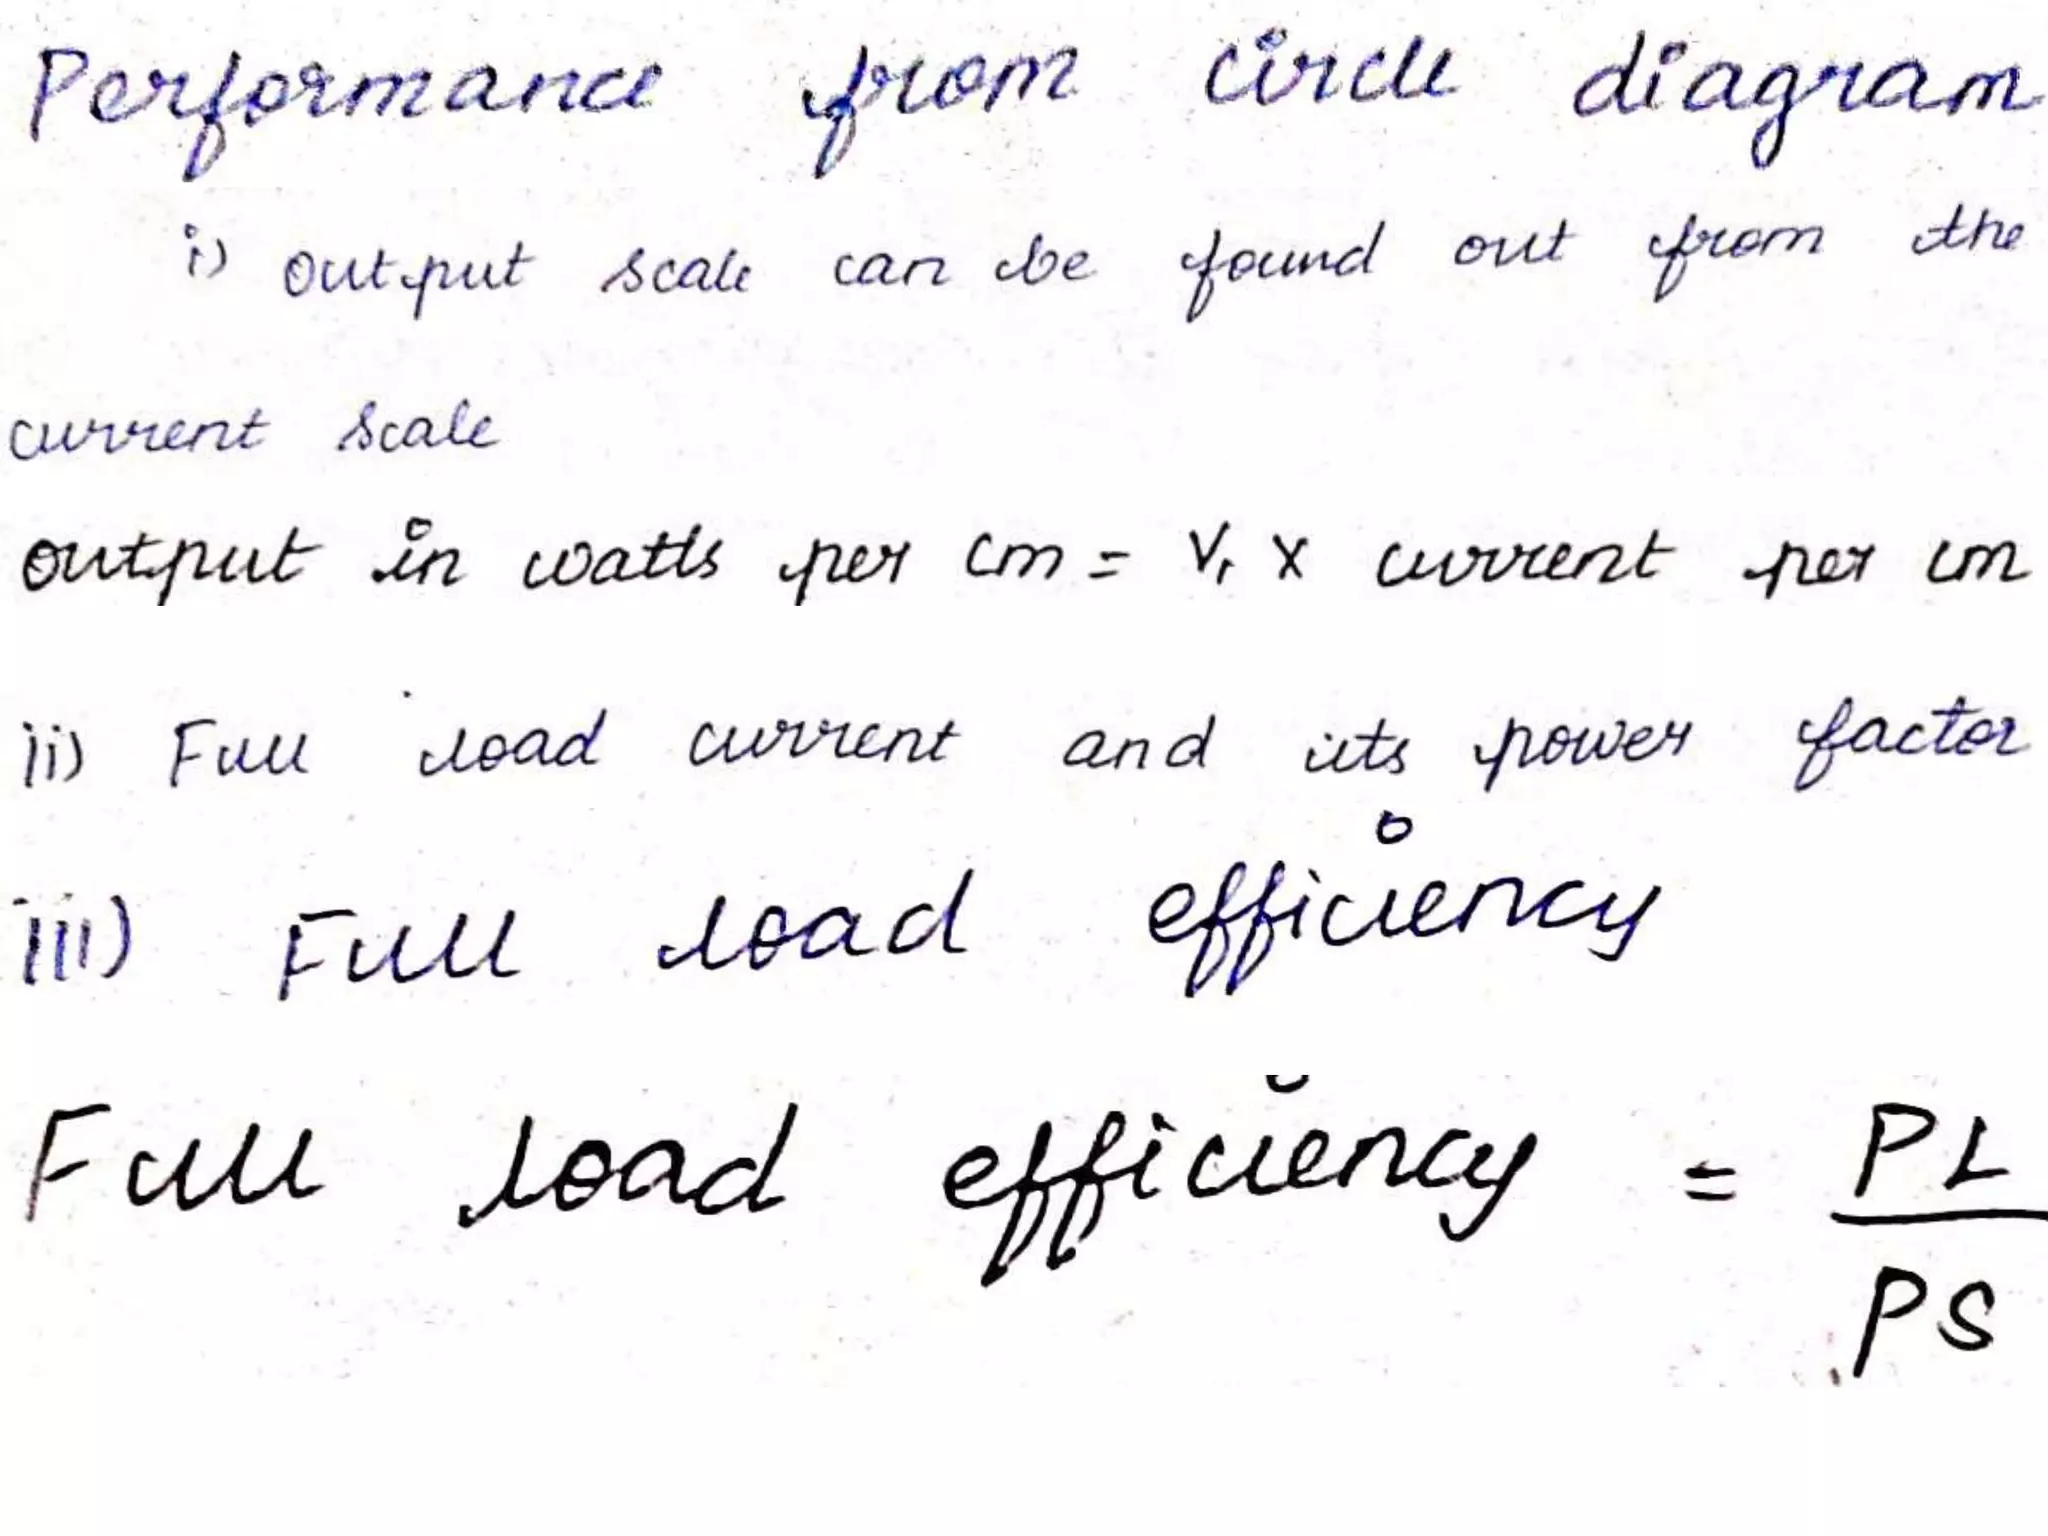 Performance from circle diagram
i) output scale can be found out from the
current scale
output in watts per cm = V₁ x current per cm
ii) Full load current and its power factor
iii) Full load efficiency
Full load efficiency = PL
PS